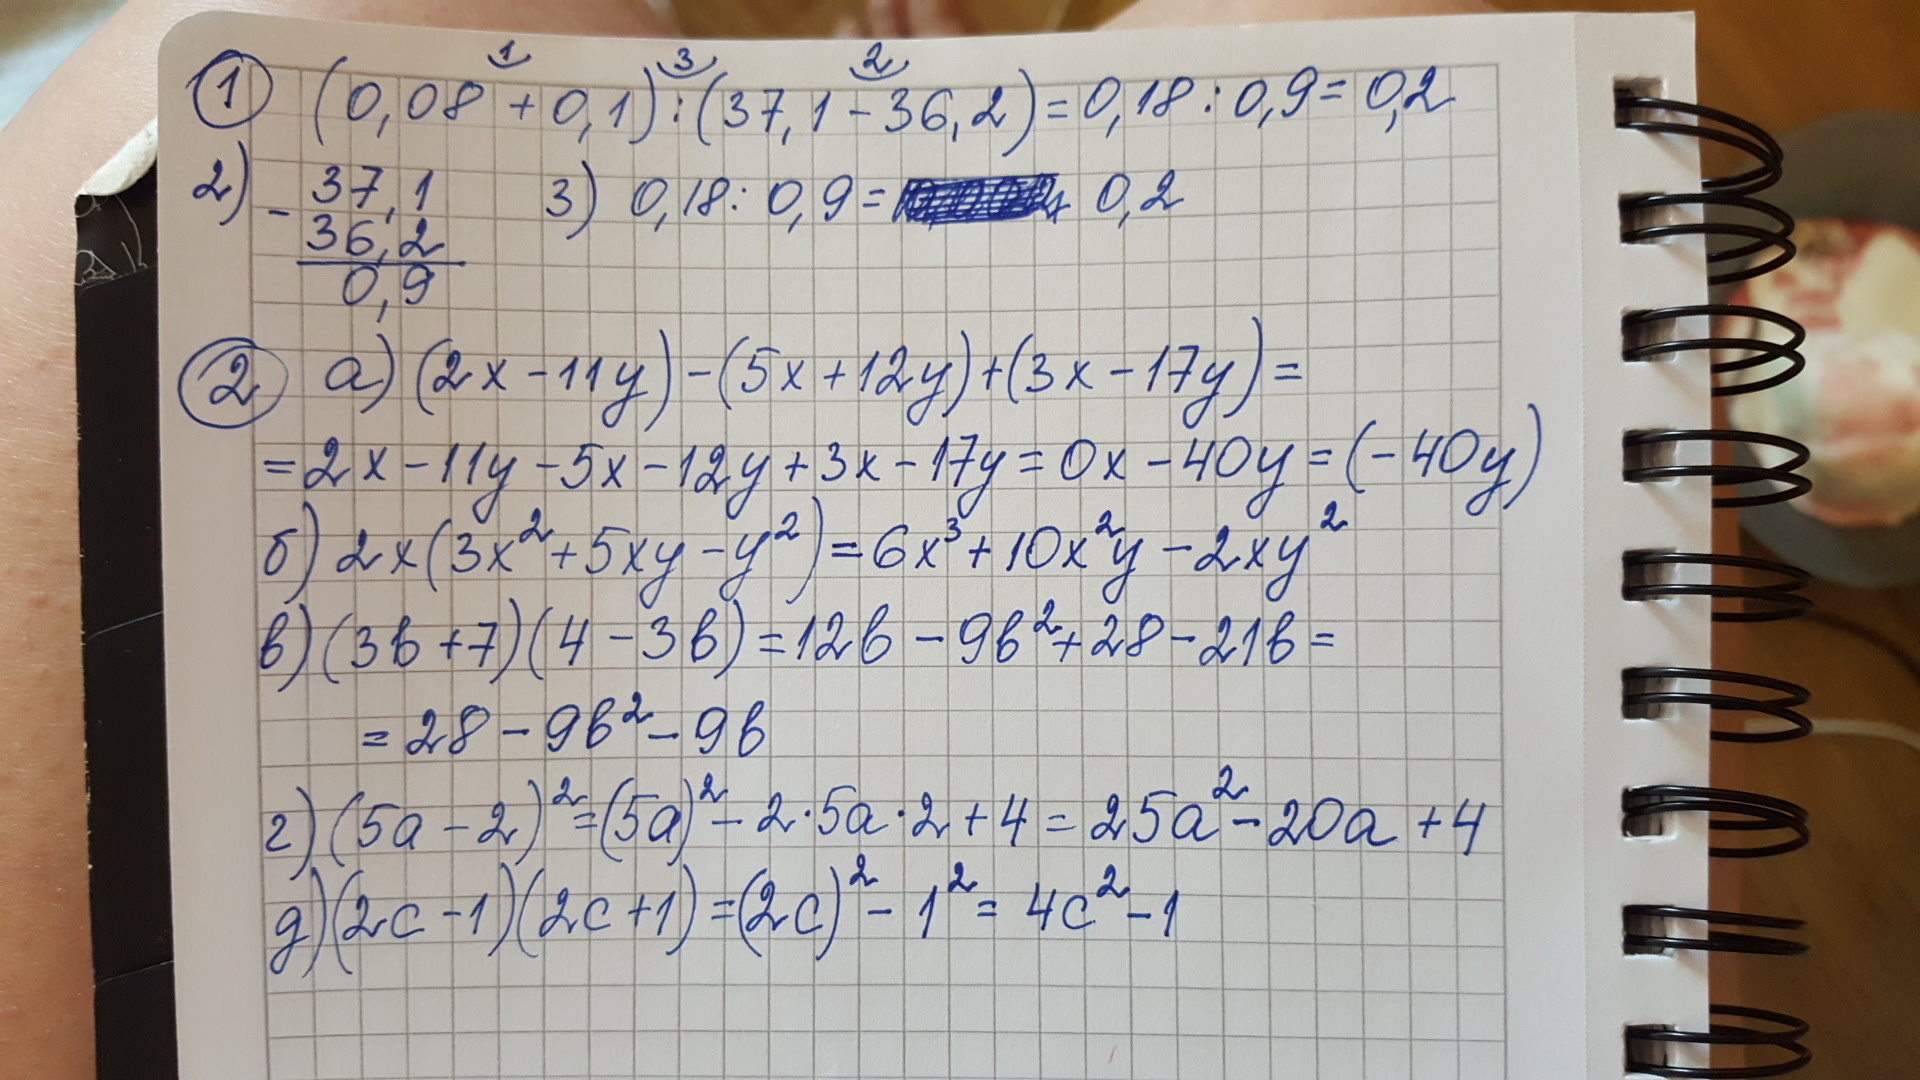 1 (0,08 + 0,1) : (37,1 - 36,2) = 0,18 : 0,9 = 0,2
1 3 2
2) - 37,1 3) 0,18 : 0,9 = 0,2
36,2
0,9
2 а) (2x - 11y) - (5x + 12y) + (3x - 17y) =
= 2x - 11y - 5x - 12y + 3x - 17y = 0x - 40y = (-40y)
б) 2x(3x² + 5xy - y²) = 6x³ + 10x²y - 2xy²
в) (3b + 7)(4 - 3b) = 12b - 9b² + 28 - 21b =
= 28 - 9b² - 9b
г) (5a - 2)² = (5a)² - 2·5a·2 + 4 = 25a² - 20a + 4
д) (2c - 1)(2c + 1) = (2c)² - 1² = 4c² - 1